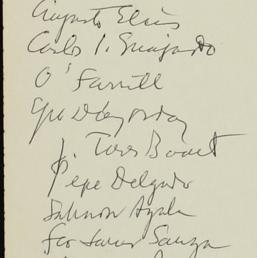 Augusto Elías
Carlos I. Guajardo
O'Farrill
J. Torres Bodet
Pepe Delgado
Salomon Ayala
Fco Javier Sauza